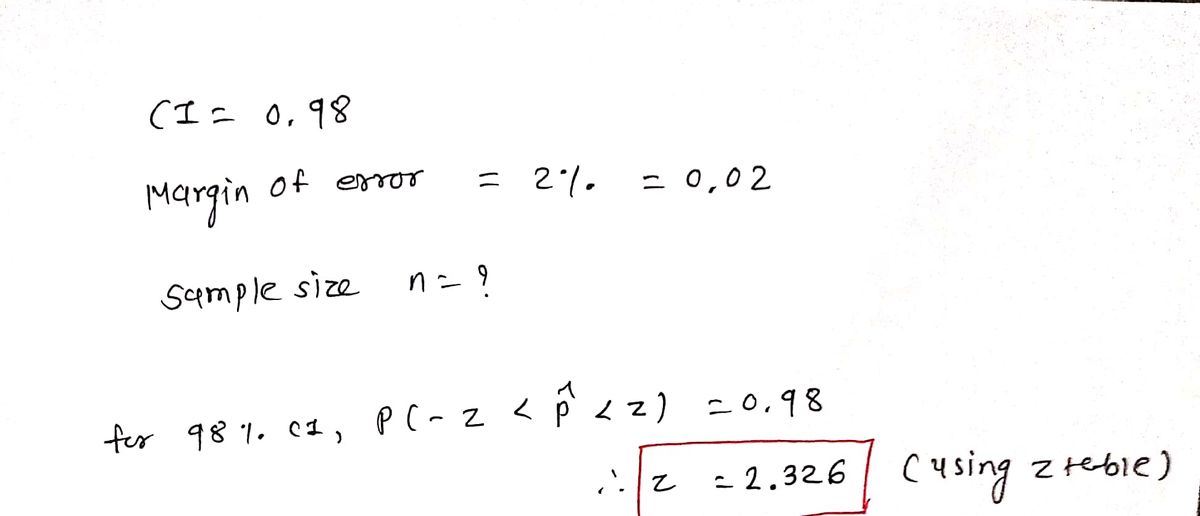 CI = 0.98
Margin of error = 2% = 0.02
Sample size n = ?
for 98% CI, P(-z < p̂ < z) = 0.98
∴ z = 2.326 (using z table)